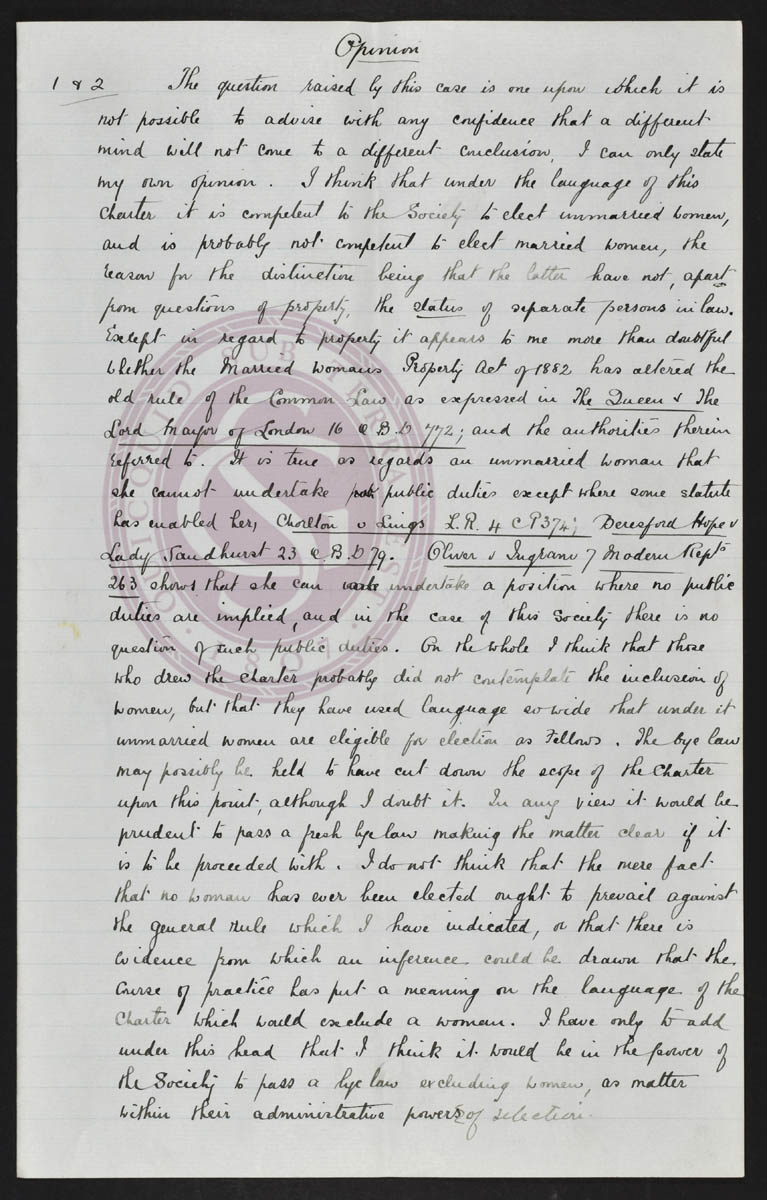 Opinion
1 & 2 The question raised by this case is one upon which it is
not possible to advise with any confidence that a different
mind will not come to a different conclusion, I can only state
my own opinion. I think that under the language of this
Charter it is competent to the Society to elect unmarried women,
and is probably not competent to elect married women, the
reason for the distinction being that the latter have not, apart
from questions of property, the status of separate persons in law.
Except in regard to property it appears to me more than doubtful
whether the Married Womans Property Act of 1882 has altered the
old rule of the Common Law as expressed in The Queen v The
Lord Mayor of London 16 Q.B.D 772; and the authorities therein
referred to. It is true as regards an unmarried woman that
she cannot undertake public duties except where some statute
has enabled her, Chorlton v Lings L.R. 4 C P 374; Beresford Hope v
Lady Sandhurst 23 Q.B.D 79. Oliver v Ingram 7 Modern Repts
263 shows that she can undertake a position where no public
duties are implied, and in the case of this Society there is no
question of such public duties. On the whole I think that those
who drew the Charter probably did not contemplate the inclusion of
women, but that they have used language so wide that under it
unmarried women are eligible for election as Fellows. The bye law
may possibly be held to have cut down the scope of the Charter
upon this point, although I doubt it. In any view it would be
prudent to pass a fresh bye law making the matter clear if it
is to be proceeded with. I do not think that the mere fact
that no woman has ever been elected ought to prevail against
the general rule which I have indicated, or that there is
evidence from which an inference could be drawn that the
course of practice has put a meaning on the language of the
Charter which would exclude a woman. I have only to add
under this head that I think it would be in the power of
the Society to pass a bye law excluding women, as matter
within their administrative powers of selection.
QUICQUID SUB TERRA EST